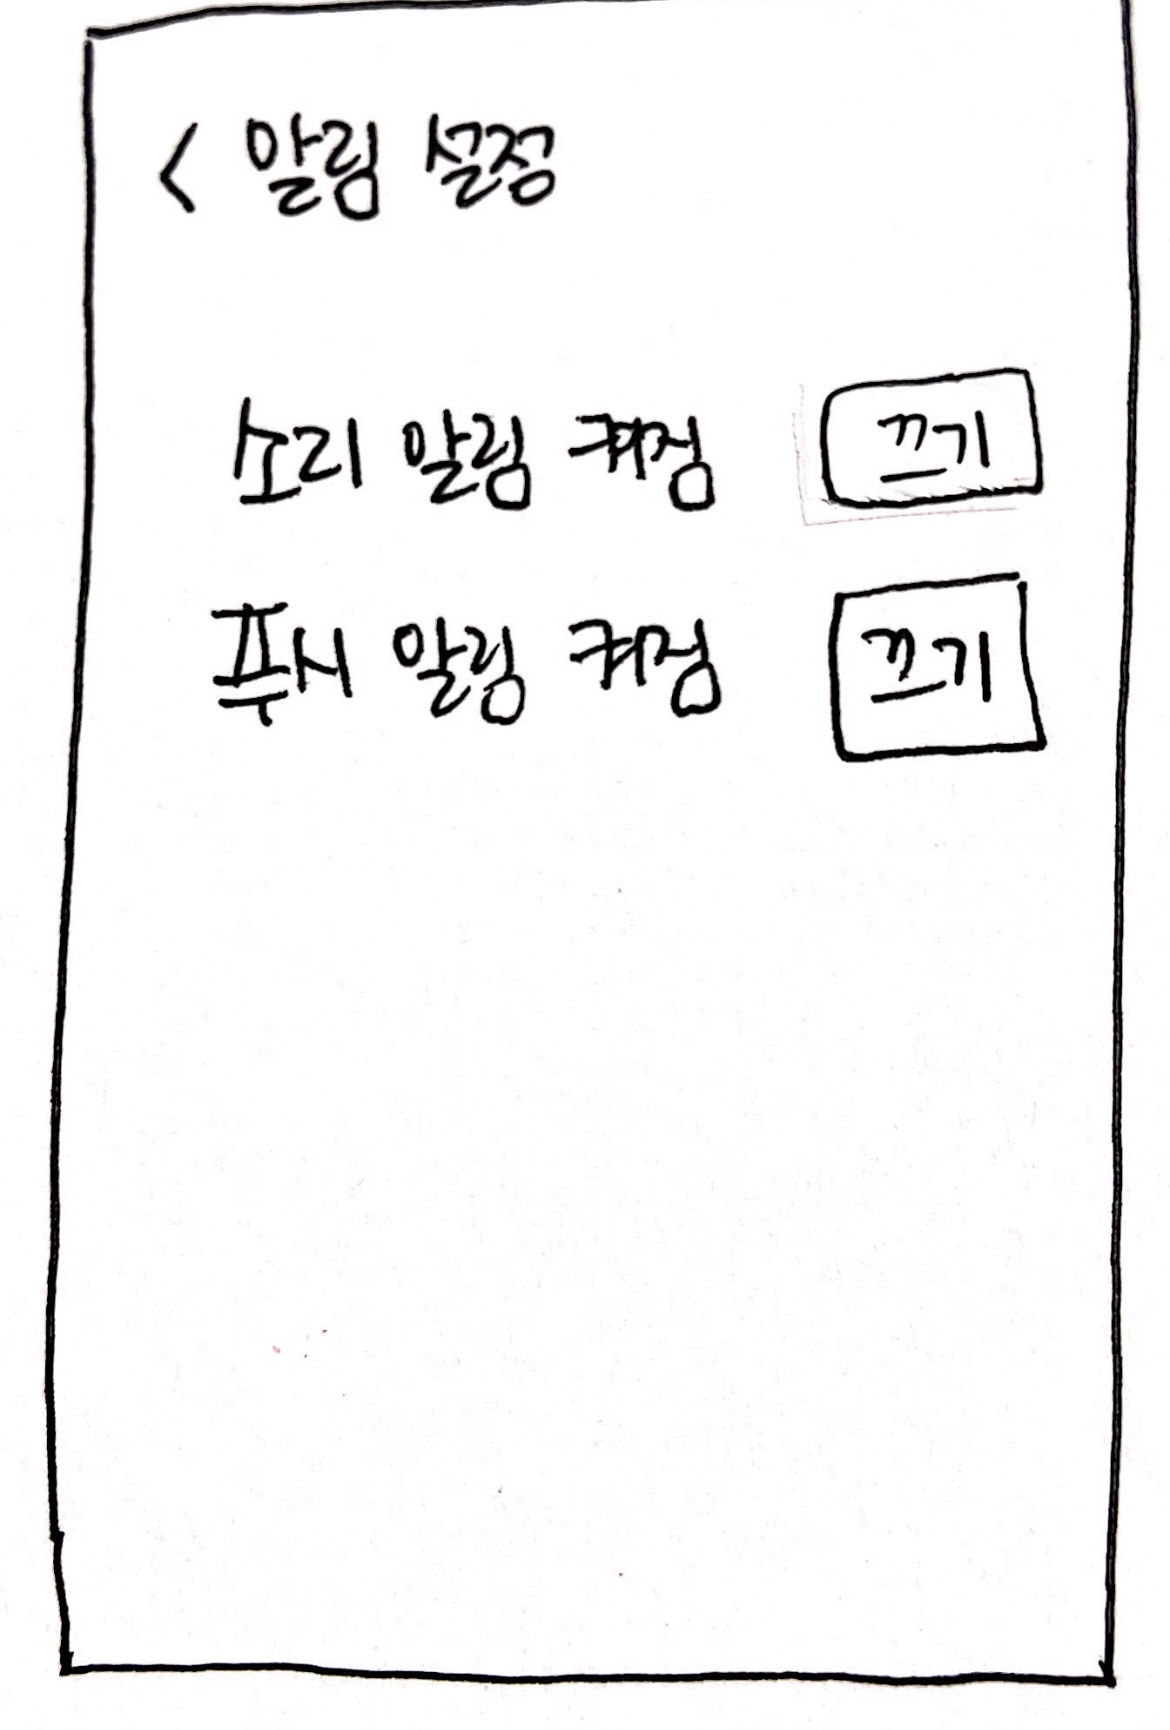 < 알림 설정
소리 알림 켜짐 끄기
푸시 알림 켜짐 끄기